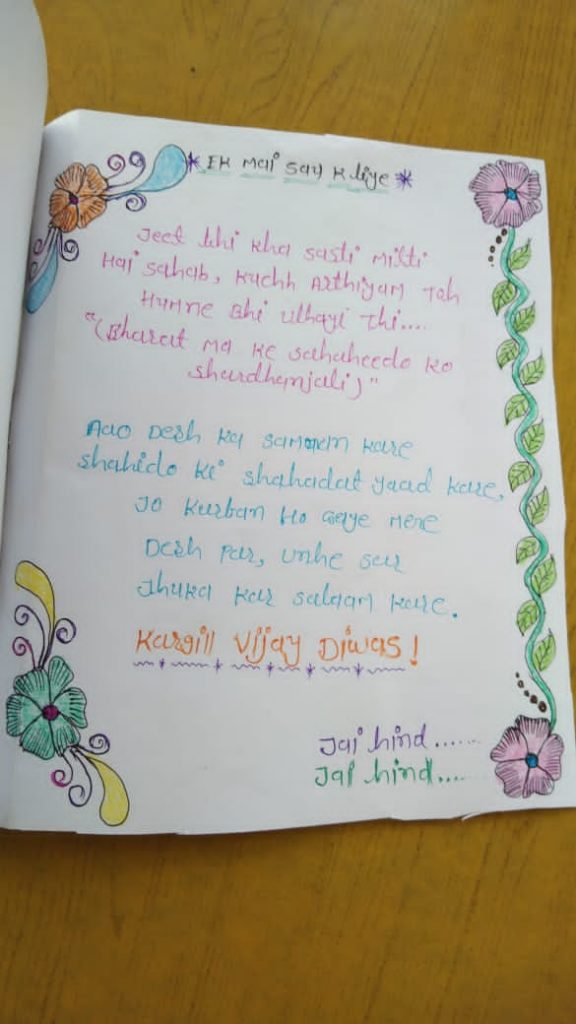 * EK Mai Say K liye *
Jeet bhi kha sasti Milti
Hai sahab, kuchh Arthiyam Toh
Humne Bhi uthayi Thi....
"(Bharat Ma ke sahaheedo ko
shardhanjali)"
Aao Desh ka samaan kare
shahido ki shahadat yaad kare,
Jo Kurban Ho gaye mere
Desh par, unhe sar
Jhuka kar salaam kare.
Kargill Vijay Diwas!
Jai hind......
Jai hind....